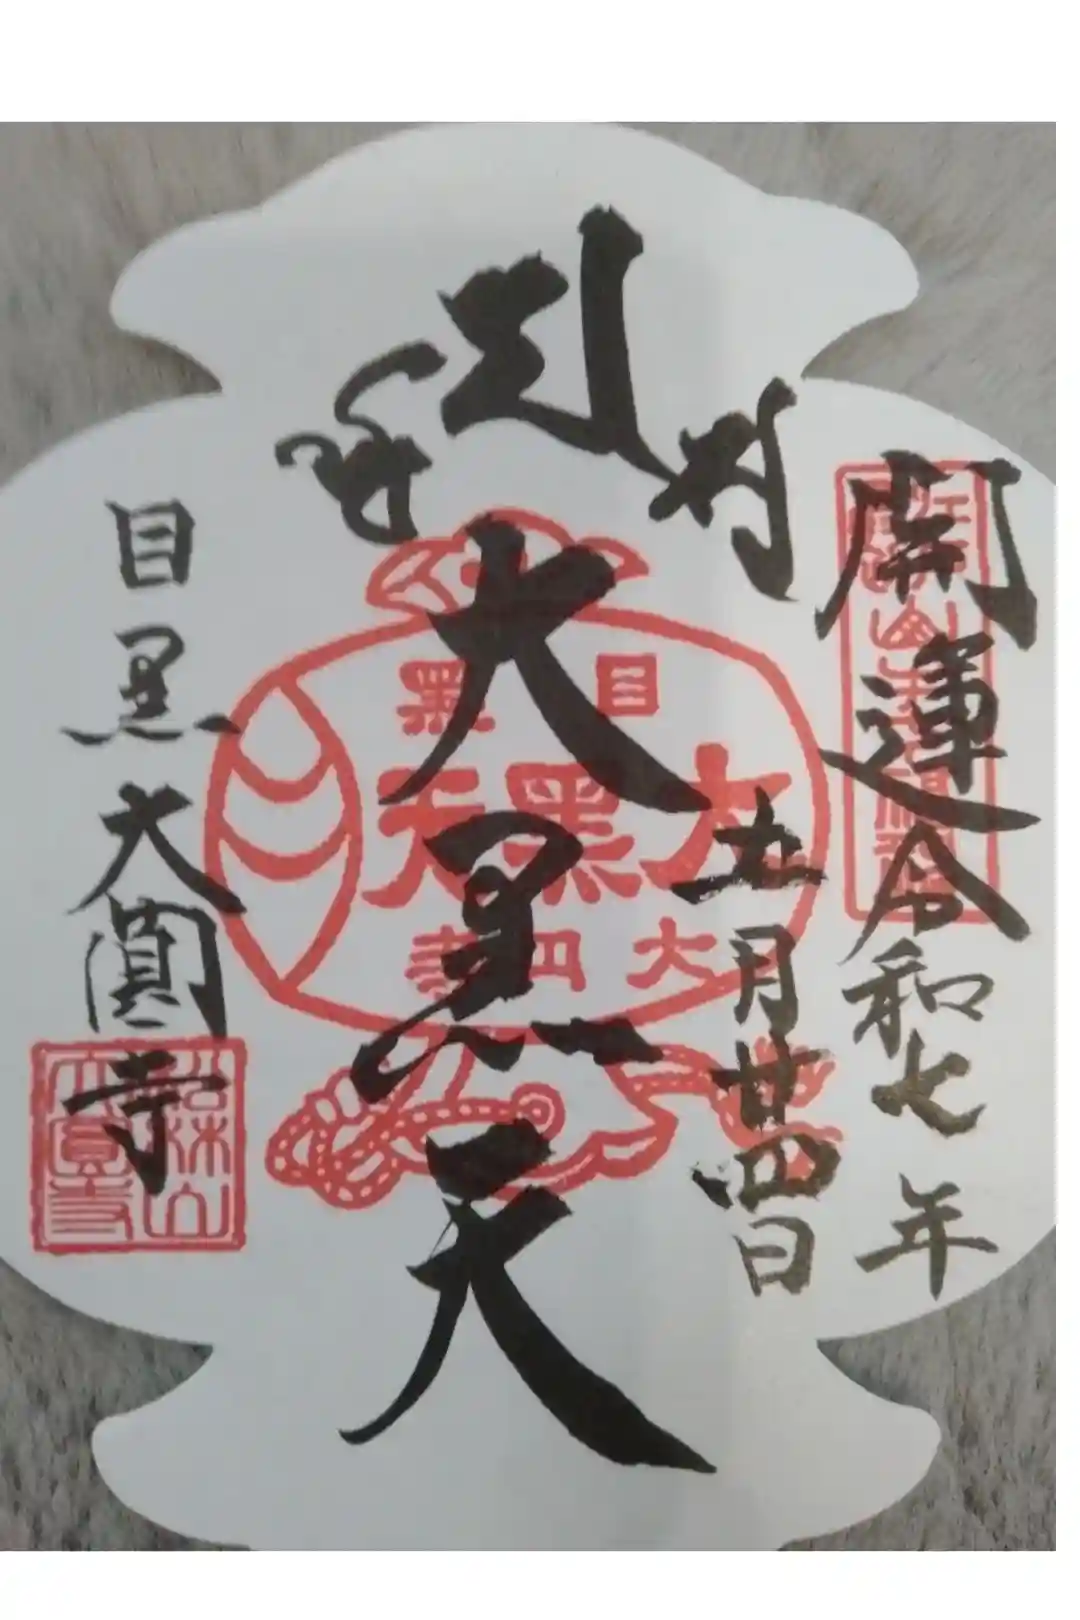 開運
令和七年
五月廿四日
大黒天
目黒
大黒天
大円寺
目黒大圓寺
松林山
大圓寺